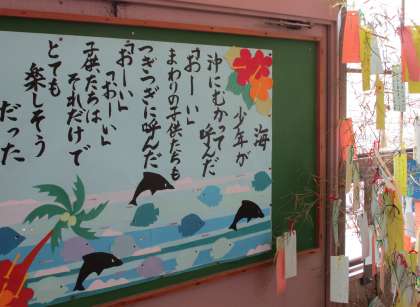 海
少年が
沖にむかって呼んだ
「おーい」
まわりの子供たちも
つぎつぎに呼んだ
「おーい」「おーい」
子供たちは それだけで
とても 楽しそう
だった